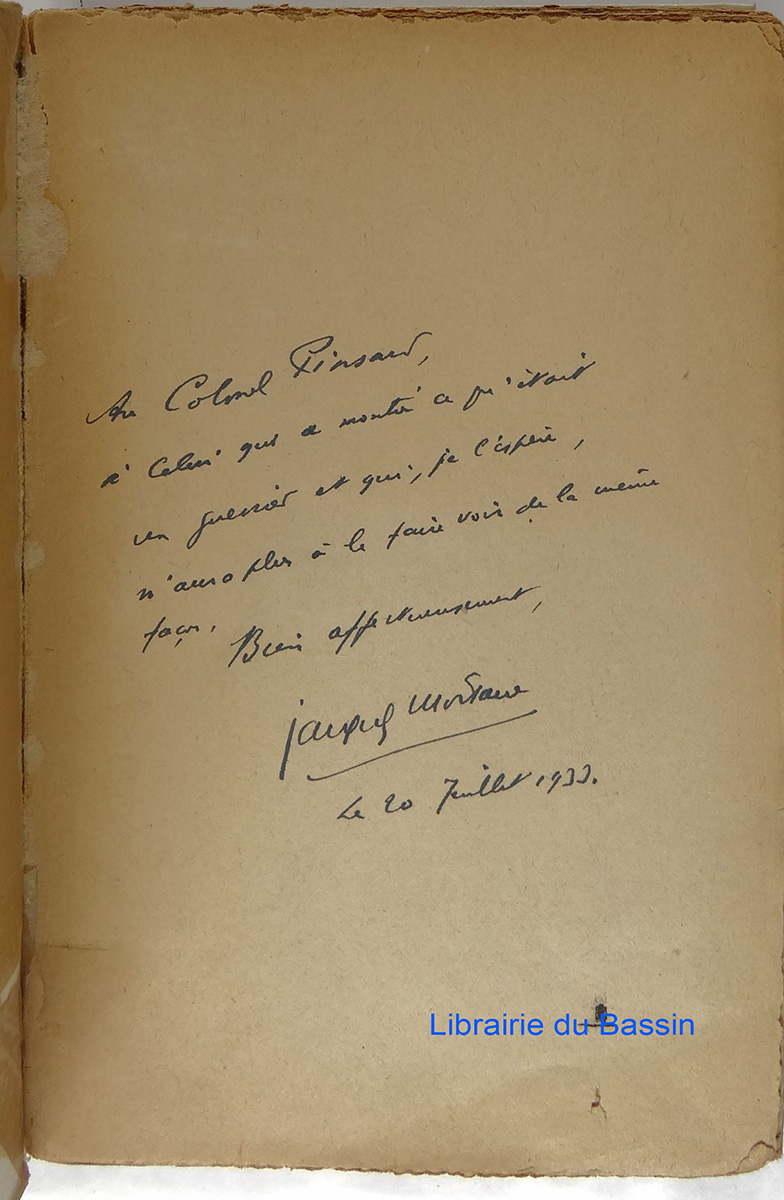 Au Colonel Pinsard,
à Celui qui a montré ce qu'était
un guerrier et qui, je l'espère,
n'aura plus à le faire voir de la même
façon.
Bien affectueusement,
Jacques Mortane
Le 20 Juillet 1933.
Librairie du Bassin